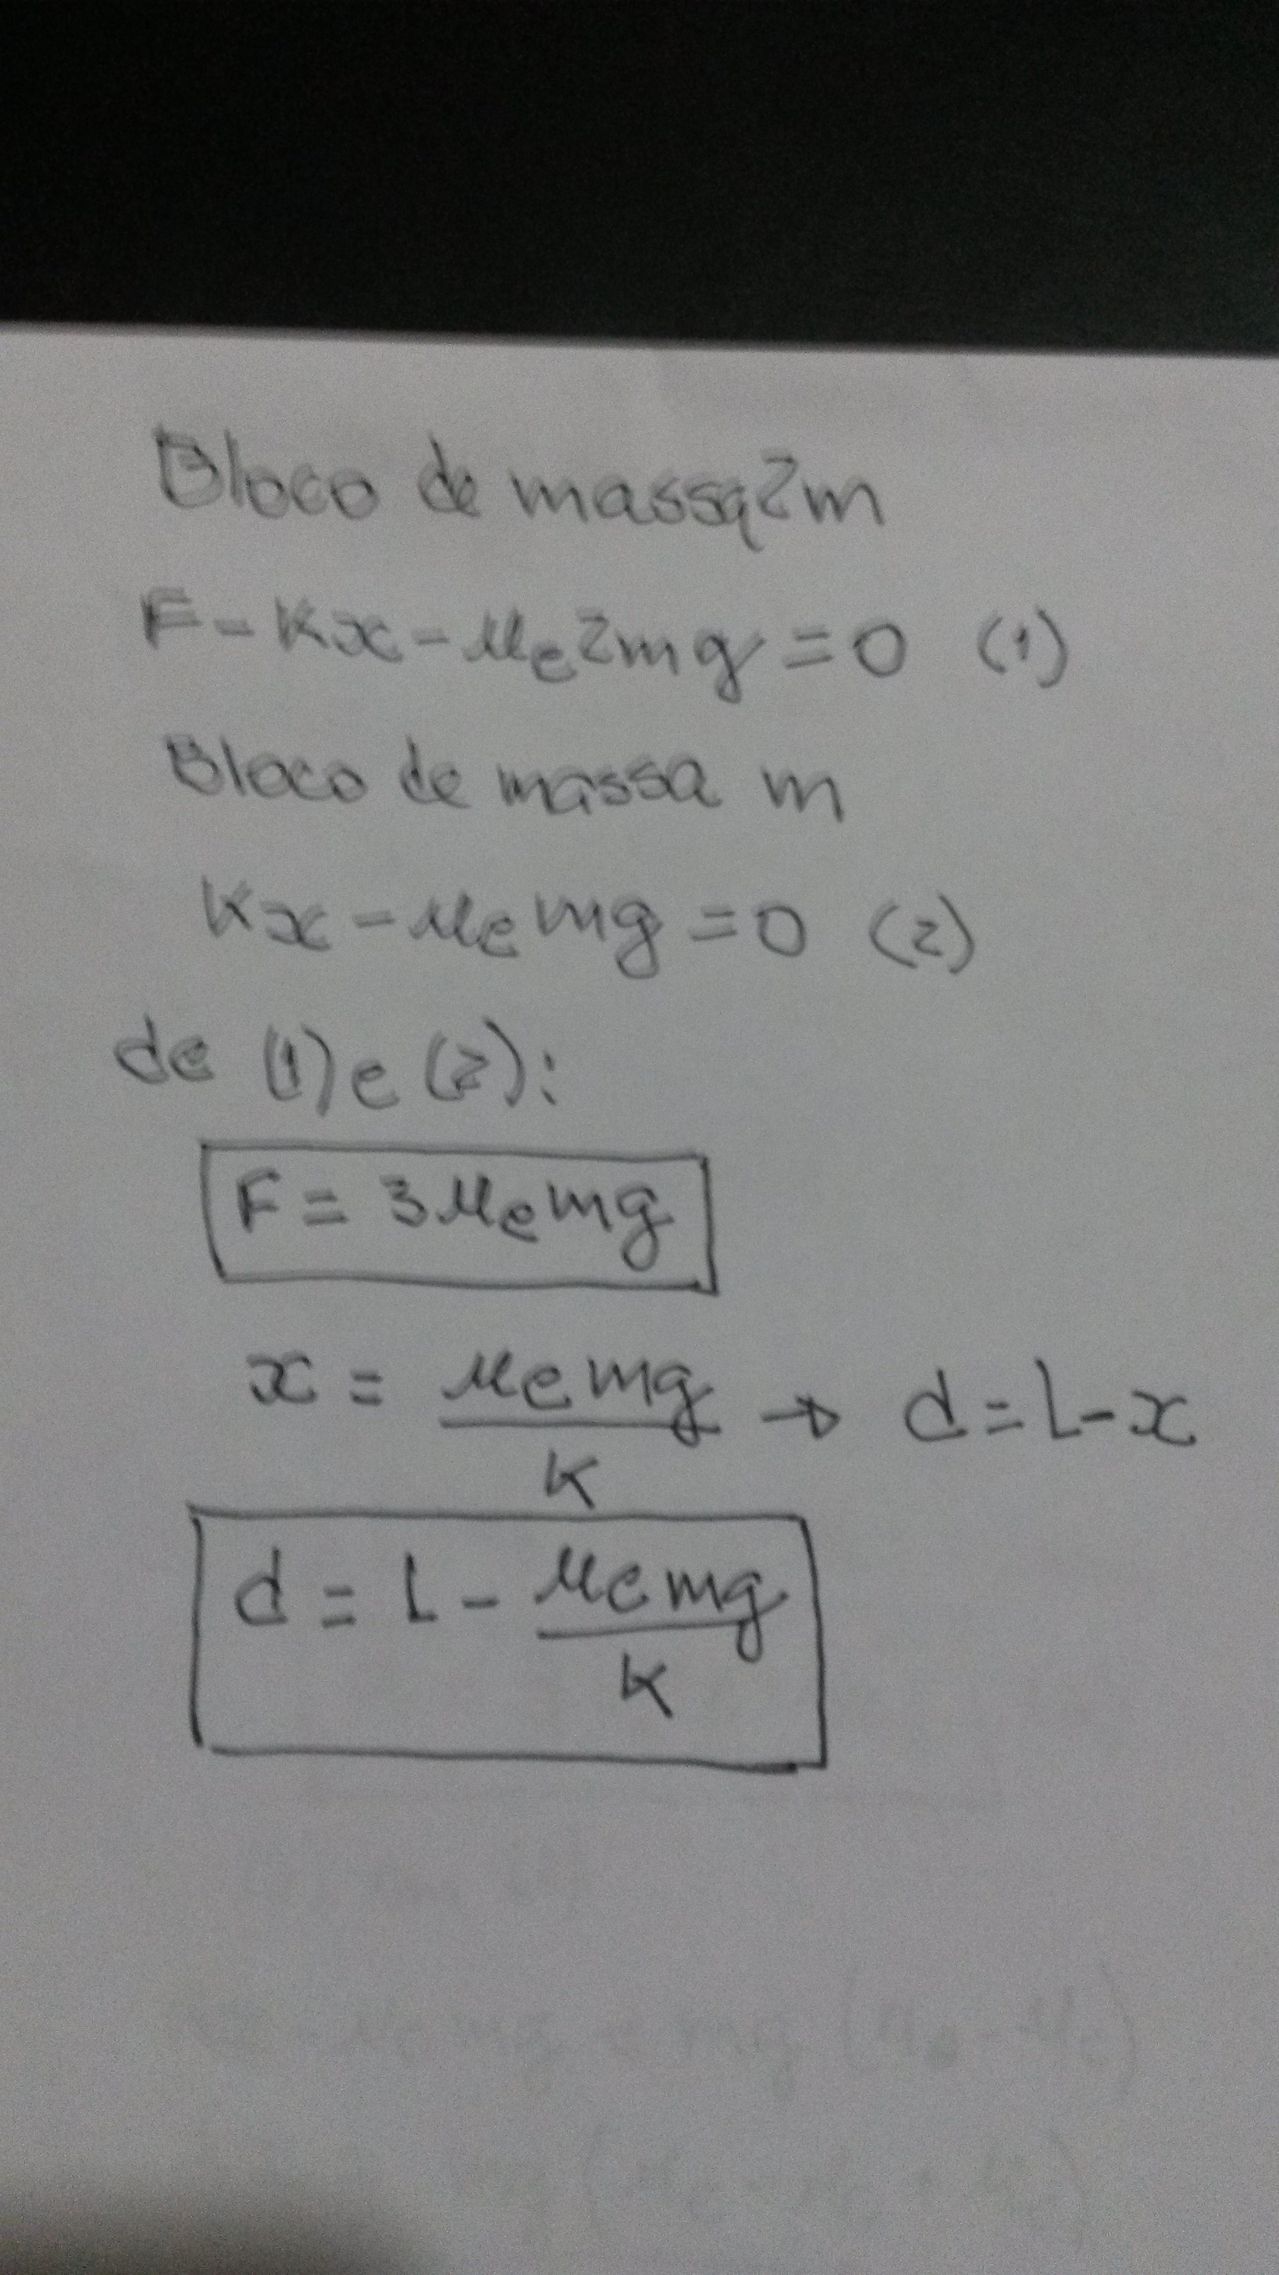 Bloco de massa 2m
F - Kx - μe2mg = 0 (1)
Bloco de massa m
Kx - μemg = 0 (2)
de (1) e (2):
F = 3μemg
x = μemg/K → d = L - x
d = L - μemg/K